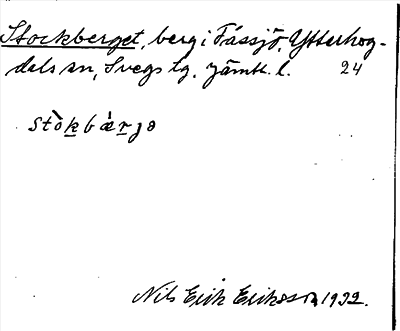 Stockberget, berg i Fåssjö, Ytterhog-
dals sn, Svegs tg, Jämtl. l. 24
stòkbæ̀rjə
Nils Erik Eriksson 1932.